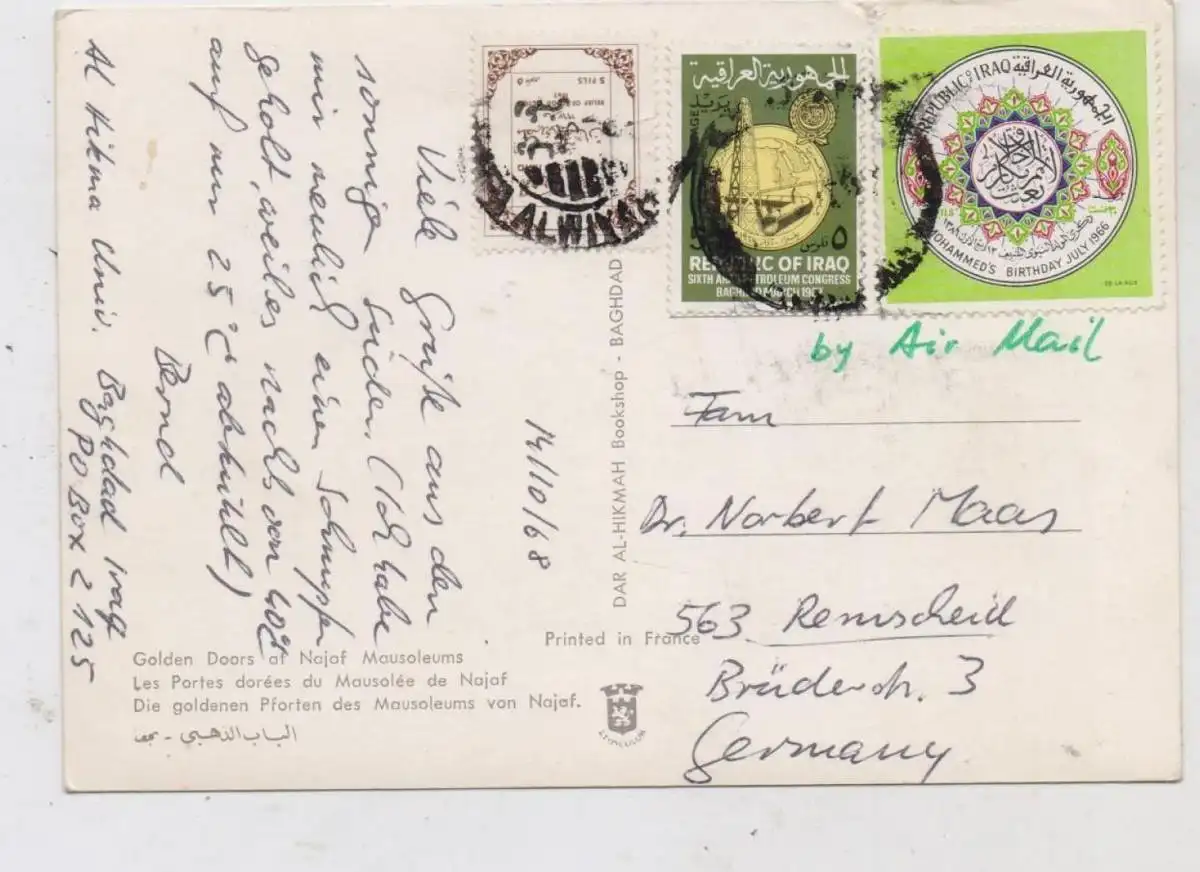 14/10/68
Viele Grüße aus den
sonnigen Süden. (Ich habe
mir neulich einen Schnupfen
geholt, weil es nachts von 40°C
auf nur 25°C abkühlt)
Bernd
Al Hikma Univ. Baghdad Iraq
PO Box 2125
Golden Doors at Najaf Mausoleums
Les Portes dorées du Mausolée de Najaf
Die goldenen Pforten des Mausoleums von Najaf.
الباب الذهبي - نجف
DAR AL-HIKMAH Bookshop - BAGHDAD
Printed in France
5 FILS
ALWIYA
الجمهورية العراقية
بريد
٥ فلوس
REPUBLIC OF IRAQ
SIXTH ARAB PETROLEUM CONGRESS
BAGHDAD MARCH 1967
REPUBLIC OF IRAQ الجمهورية العراقية
MOHAMMED'S BIRTHDAY JULY 1966
by Air Mail
Fam
Dr. Norbert Maas
563 Remscheid
Brüderstr. 3
Germany